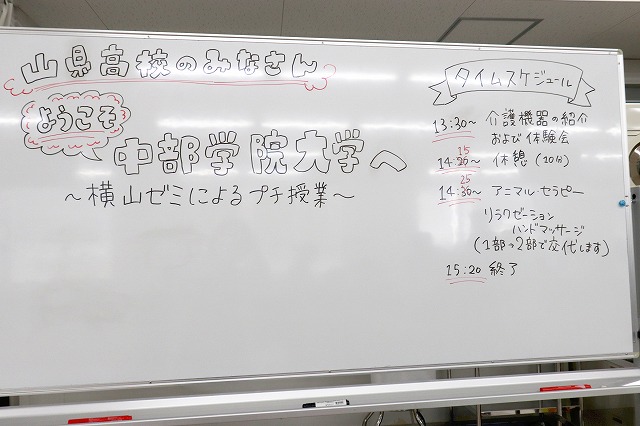 山県高校のみなさん
ようこそ
中部学院大学へ
～横山ゼミによるプチ授業～
タイムスケジュール
13:30～ 介護機器の紹介
および体験会
15
14:20～ 休憩（10分）
25
14:30～ アニマルセラピー
リラクゼーション
ハンドマッサージ
（1部→2部で交代します）
15:20 終了